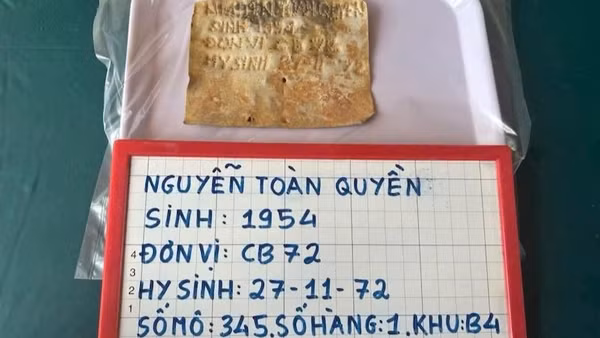 NGUYỄN TOÀN QUYỀN
SINH
ĐƠN VỊ
HY SINH
NGUYỄN TOÀN QUYỀN
SINH: 1954
ĐƠN VỊ: CB 72
HY SINH: 27-11-72
SỐ MỘ: 345. SỐ HÀNG: 1. KHU: B4
4
3
2
1